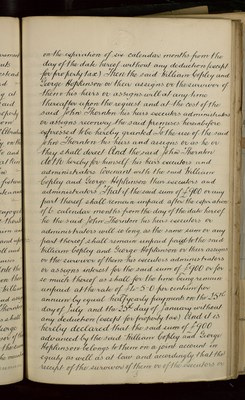 on the expiration of six calendar months from the
day of the date hereof without any deduction (except
for property tax) Then the said William Copley and
George Hopkinson or their assigns or the survivor of
them his heirs or assigns will at any time
thereafter upon the request and at the cost of the
said John Thornton his heirs executors administrators
or assigns reconvey the said premises hereinbefore
expressed to be hereby granted to the use of the said
John Thornton his heirs and assigns or as he or
they shall direct And the said John Thornton
doth hereby for himself his heirs executors and
administrators covenant with the said William
Copley and George Hopkinson their executors and
administrators That if the said sum of £900 or any
part thereof shall remain unpaid after the expiration
of 6 calendar months from the day of the date hereof
he the said John Thornton his heirs executors or
administrators will so long as the same sum or any
part thereof shall remain unpaid pay to the said
William Copley and George Hopkinson or their assigns
or the survivor of them his executors administrators
or assigns interest for the said sum of £900 or for
so much thereof as shall for the time being remain
unpaid at the rate of per centum per
annum by equal half yearly payments on the 25th
day of July and the 25th day of January without
any deduction (except for property tax) And it is
hereby declared that the said sum of £900
advanced by the said William Copley and George
Hopkinson belongs to them on a joint account in
equity as well as at law and accordingly that the
receipt of the survivors of them or of the executors or